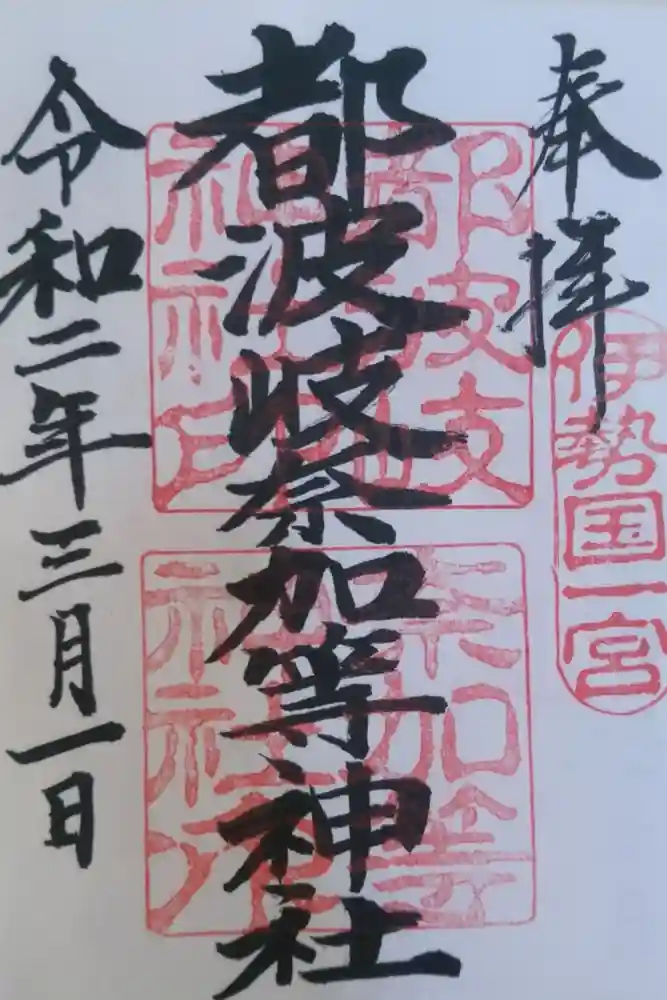 奉拝
伊勢国一宮
都波岐奈加等神社
都波岐
神社印
奈加等
神社印
令和二年三月一日